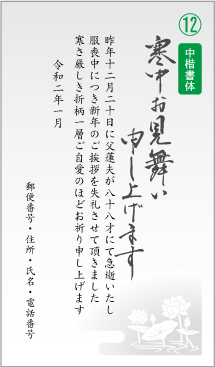 ⑫
中楷書体
寒中お見舞い
申し上げます
昨年十二月二十日に父蓮夫が八十八才にて急逝いたし
服喪中につき新年のご挨拶を失礼させて頂きました
寒さ厳しき折柄一層ご自愛のほどお祈り申し上げます
令和二年一月
郵便番号・住所・氏名・電話番号